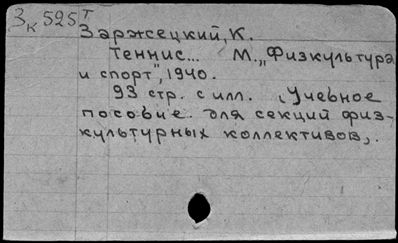 Зк 525 Т
Заржецкий, К.
Теннис... М., „Физкультура
и спорт”, 1940.
93 стр. с илл. (Учебное
пособие для секций физ-
культурных коллективов).